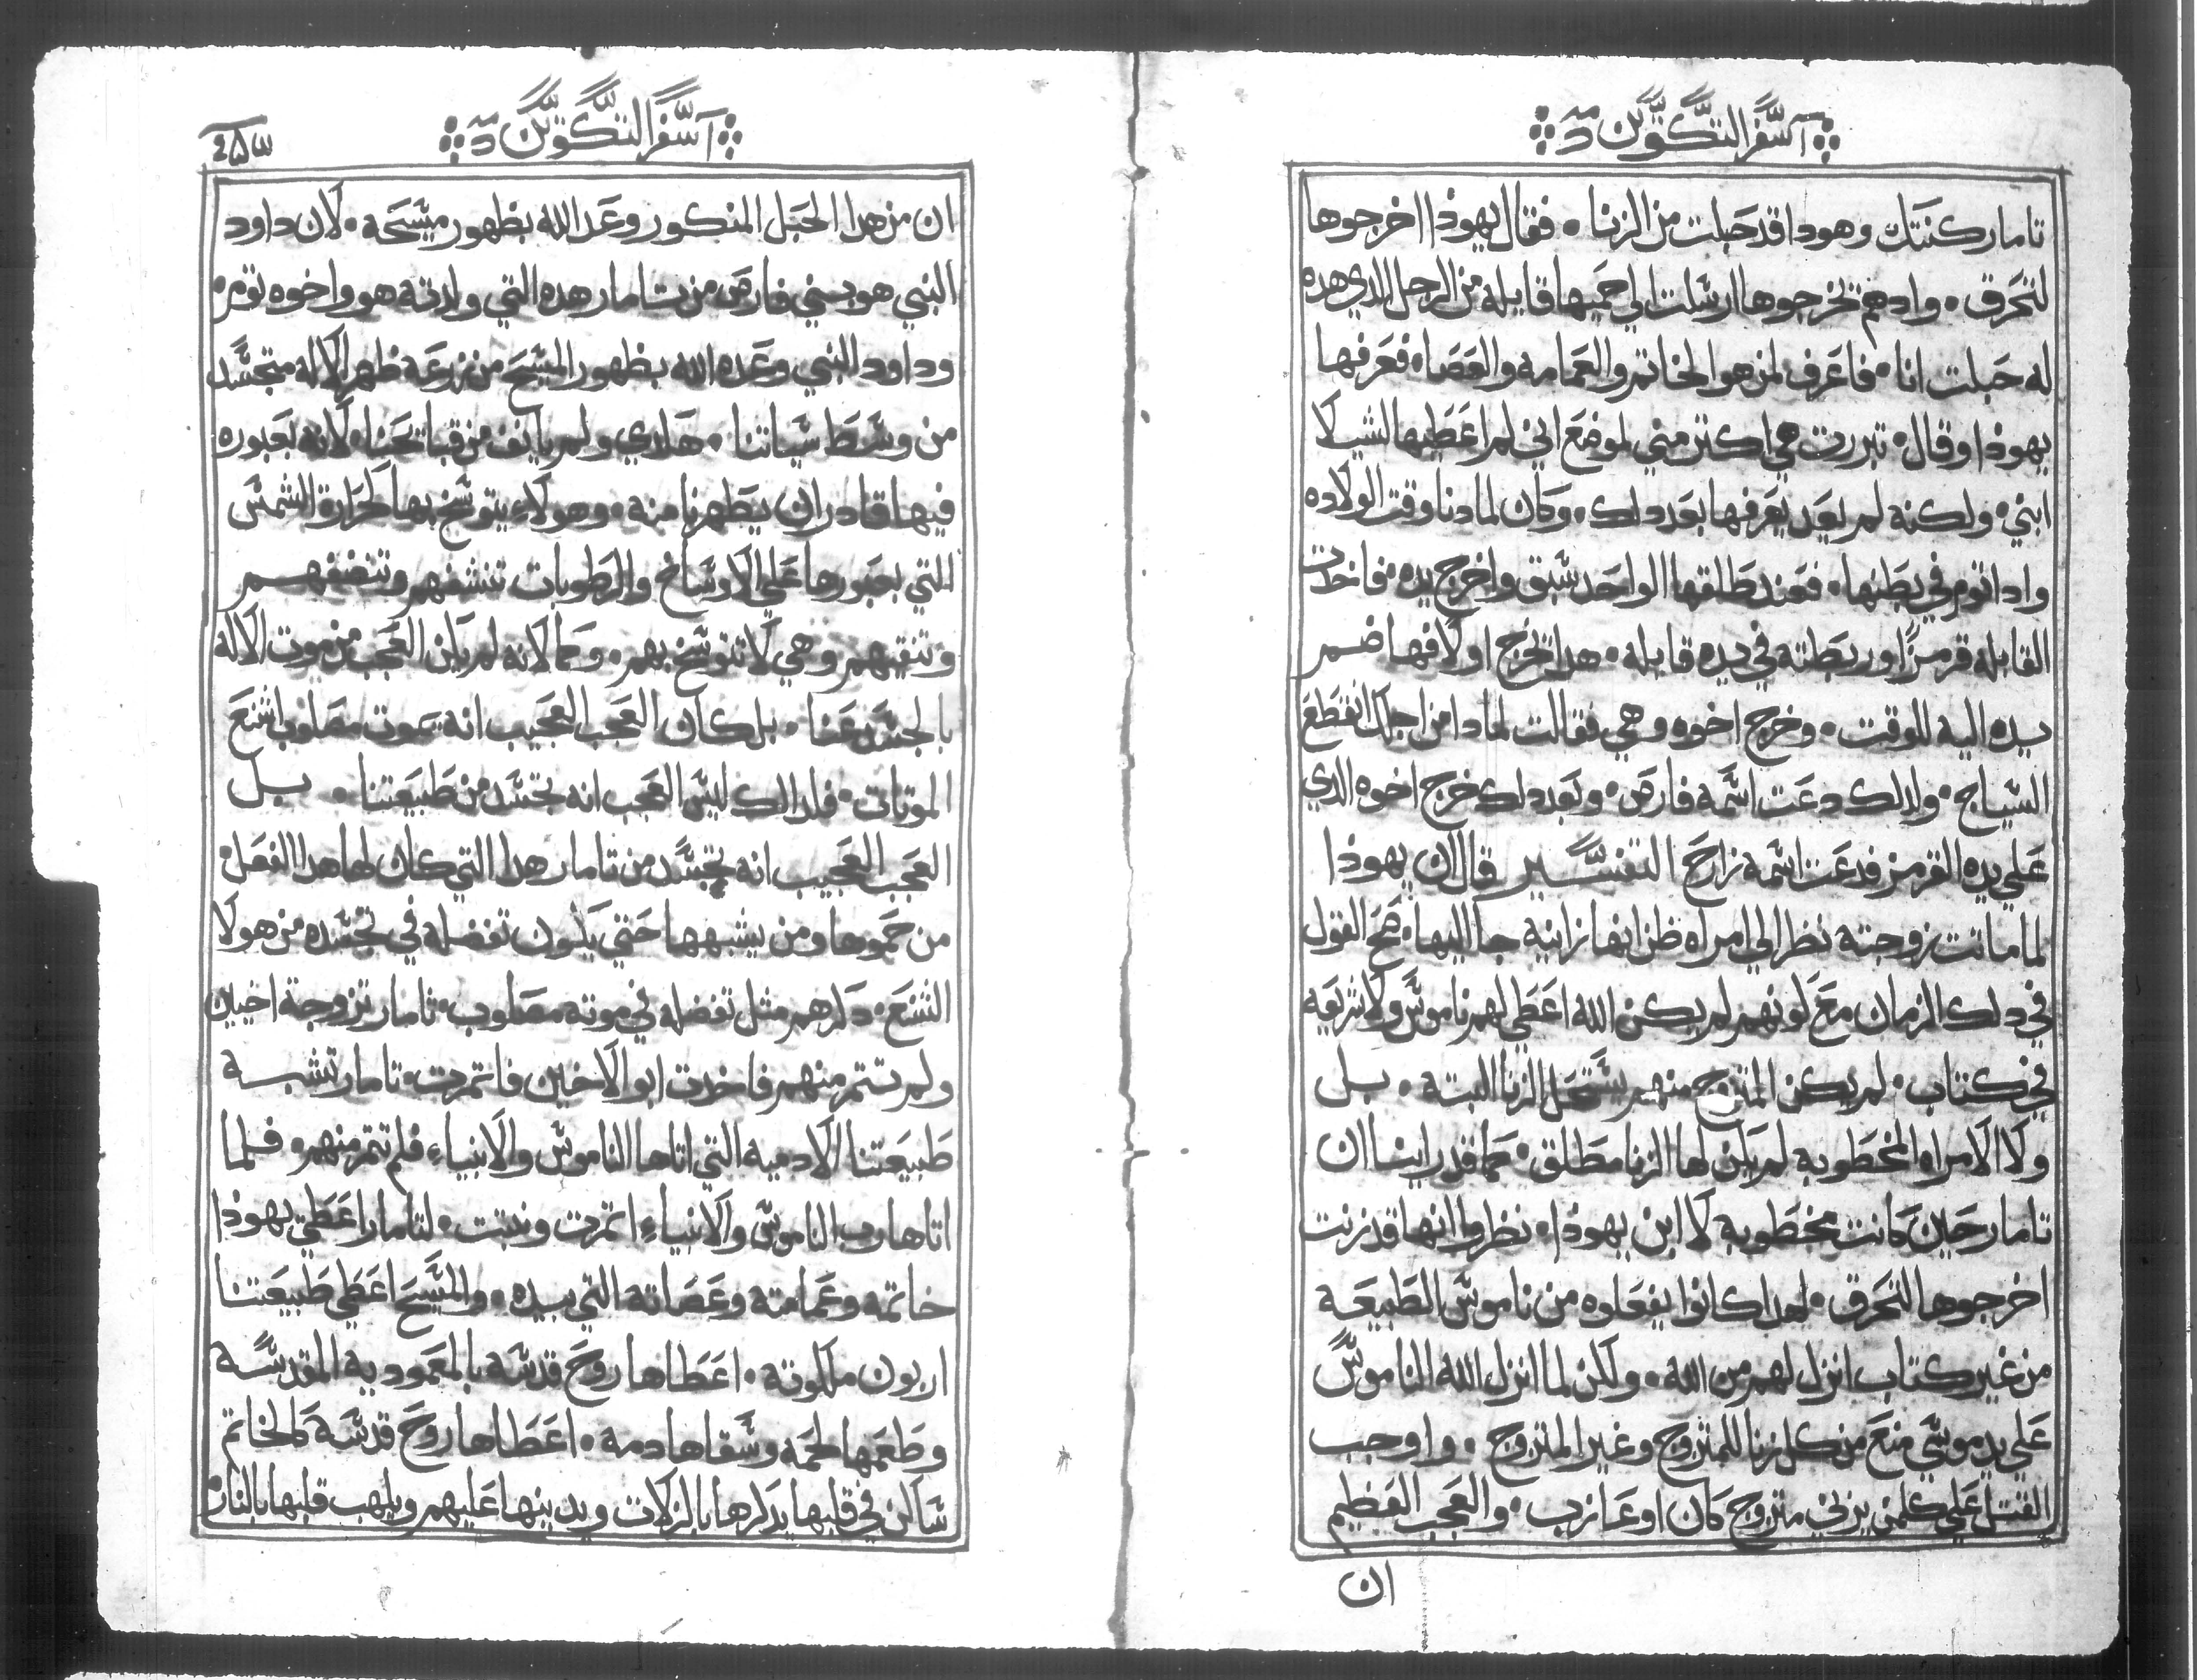 سفر التكوين
تامار كنتك وهودا قد حبلت من الزنا ܀ فقال يهوذا اخرجوها
لتحرق ܀ واد هم تخرجوها ارسلت الي حميها قايله من الرجل الدي هده
له حبلت انا ܀ فاعرف لمن هو الخاتم والعمامه والعصاه فعرفها
يهوذا وقال ܀ تبررت هي اكتر مني لموضع اني لم اعطيها لشيلا
ابني ܀ ولكنه لم يعد يعرفها بعد دلك ܀ وكان لما دنا وقت الولاده
وادا توم في بطنها ܀ فعند طلقها الواحد سبق واخرج يده ܀ فاخدت
القابله قرمزا وربطته في يده قايله ܀ هدا تخرج اولا فها ضم
يده اليه للوقت ܀ وخرج اخوه وهي فقالت لمادا من اجلك انقطع
السياج ܀ ولدلك دعت اسمه فارص ܀ وبعد دلك خرج اخوه الدي
علي يده القرمز فدعت اسمه زارح التفسير قال ان يهوذا
لما ماتت زوجته نظر الي امراه ظن انها زانيه جا اليها ܀ صح القول
في دلك الزمان مع لونهم لم يكن الله اعطي لهم ناموس ولا شريعه
في كتاب ܀ لم يكن المتزوج منهم يستحل الزنا البتة ܀ بل
ولا الامراه المخطوبه لم يكن لها الزنا مطلق ܀ كما قد راينا ان
تامار حين كانت مخطوبه لابن يهوذا ܀ نظروا انها قد زنت
اخرجوها لتحرق ܀ لهدا كانوا يفعلوه من ناموس الطبيعه
من غير كتاب انزل لهم من الله ܀ ولكن لما انزل الله الناموس
علي يد موسي منع من كل زنا للمتزوج وغير المتزوج ܀ واوجب
القتل علي كلمن يزني متزوج كان او عازب ܀ والعجب العظيم
ان
سفر التكوين
ان من هدا الحبل المدكور وعد الله بظهور مسيحه ܀ لان داود
النبي هو بني فارص من تامار هده التي ولدته هو واخوه توم ܀
وداود النبي وعده الله بظهور المسيح من زرعه ظهر الاله متجسد
من وسط سياتنا ܀ هلدي ولم يانف من قباتحنا ܀ لانه بعبوره
فيها قادر ان يطهرنا منه ܀ وهو لاء يتوسخ بها كحرارة الشمس
التي بعبورها علي الاوساخ والرطوبات تنشفهم وتنضفهم
وتنقيهم وهي لا تتوسخ بهم ܀ وكما لانه لم يكن العجب من موت الاله
بالجسد عنا ܀ بل كان العجب العجيب انه يموت مصلوب اشنع
الموتات ܀ فلدالك ليس العجب انه تجسد من طبيعتنا ܀ بل
العجب العجيب انه تجسد من تامار هدا التي كان لها هدا الفعل ܀
من حموها ومن يشبهها حتي يكون تفضله في تجسده من هولا
الشنع ܀ دلرهم مثل تفضله في موته مصلوب ܀ تامار تزوجة اخيين
ولم تتمر منهم فاخدت ابو الاخين فاتمرت ܀ تامار تشبه
طبيعتنا الادميه التي اتاها الناموس والانبياء فلم تتمر منهم ܀ فلما
اتاها رب الناموس والانبياء اتمرت ونبتت ܀ لتامار اعطي يهوذا
خاتمه وعمامته وعصاته التي بيده ܀ والمسيح اعطي طبيعتنا
اربون ملكوته ܀ اعطاها روح قدسه بالمعموديه المقدسه
وطعمها لحمه وسقاها دمه ܀ اعطاها روح قدسه كالخاتم
ساكن في قلبها يدكرها بالزلات ويدينها عليهم ويلهب قلبها بالنار ܀